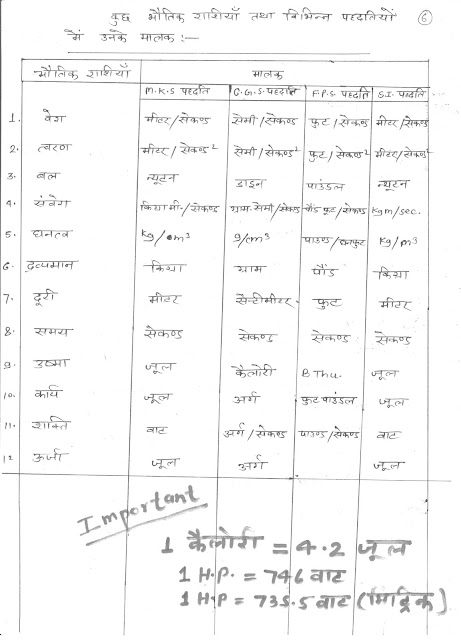 कुछ भौतिक राशियाँ तथा विभिन्न पद्दतियों ⑥
में उनके मात्रक :—
भौतिक राशियाँ मात्रक
M.K.S पद्दति C.G.S पद्दति F.P.S पद्दति S.I. पद्दति
1. वेग मीटर/सेकण्ड सेमी/सेकण्ड फुट/सेकण्ड मीटर/सेकण्ड
2. त्वरण मीटर/सेकण्ड² सेमी/सेकण्ड² फुट/सेकण्ड² मीटर/सेकण्ड²
3. बल न्यूटन डाइन पाउंडल न्यूटन
4. संवेग किग्रा मी./सेकण्ड ग्राम सेमी/सेकण्ड पौंड फुट/सेकण्ड Kgm/sec.
5. घनत्व Kg/m³ g/cm³ पाउण्ड/घनफुट Kg/m³
6. द्रव्यमान किग्रा ग्राम पौंड किग्रा
7. दूरी मीटर सेन्टीमीटर फुट मीटर
8. समय सेकण्ड सेकण्ड सेकण्ड सेकण्ड
9. उष्मा जूल कैलोरी B Thu. जूल
10. कार्य जूल अर्ग फुट पाउंडल जूल
11. शक्ति वाट अर्ग/सेकण्ड पाउण्ड/सेकण्ड वाट
12 ऊर्जा जूल अर्ग जूल
Important
1 कैलोरी = 4.2 जूल
1 H.P. = 746 वाट
1 H.P = 735.5 वाट (मिट्रिक)